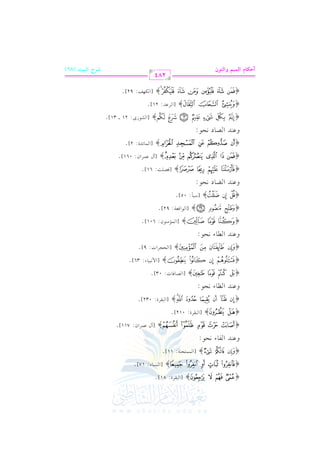 أحكام الميم والنون
٤٨٢
﴿فَمَن شَآءَ فَلْيُؤْمِن وَمَن شَآءَ فَلْيَكْفُرْ﴾ [الكهف: ٢٩].
﴿وَيُنشِئُ ٱلسَّحَابَ ٱلثِّقَالَ﴾ [الرعد: ١٢].
﴿إِنَّهُۥ بِكُلِّ شَىْءٍ عَلِيمٌ ۝ شَرَعَ لَكُم﴾ [الشورى: ١٢ ـ ١٣].
وعند الصاد نحو:
﴿أَن صَدُّوكُمْ عَنِ ٱلْمَسْجِدِ ٱلْحَرَامِ﴾ [المائدة: ٢].
﴿فَمَن ذَا ٱلَّذِى يَنصُرُكُم مِّنۢ بَعْدِهِۦ﴾ [آل عمران: ١٦٠].
﴿فَأَرْسَلْنَا عَلَيْهِمْ رِيحًا صَرْصَرًا﴾ [فصلت: ١٦].
وعند الضاد نحو:
﴿قُلْ إِن ضَلَلْتُ﴾ [سبأ: ٥٠].
﴿وَطَلْحٍ مَّنضُودٍ﴾ [الواقعة: ٢٩].
﴿وَكُنَّا قَوْمًا ضَآلِّينَ﴾ [المؤمنون: ١٠٦].
وعند الطاء نحو:
﴿وَإِن طَآئِفَتَانِ مِنَ ٱلْمُؤْمِنِينَ﴾ [الحجرات: ٩].
﴿فَسْـَٔلُوهُمْ إِن كَانُوا۟ يَنطِقُونَ﴾ [الأنبياء: ٦٣].
﴿بَلْ كُنتُمْ قَوْمًا طَـٰغِينَ﴾ [الصافات: ٣٠].
وعند الظاء نحو:
﴿إِن ظَنَّآ أَن يُقِيمَا حُدُودَ ٱللَّهِ﴾ [البقرة: ٢٣٠].
﴿هَلْ يَنظُرُونَ﴾ [البقرة: ٢١٠].
﴿أَصَابَتْ حَرْثَ قَوْمٍ ظَلَمُوٓا۟ أَنفُسَهُمْ﴾ [آل عمران: ١١٧].
وعند الفاء نحو:
﴿وَإِن فَاتَكُمْ شَىْءٌ﴾ [الممتحنة: ١١].
﴿فَٱنفِرُوا۟ ثُبَاتٍ أَوِ ٱنفِرُوا۟ جَمِيعًا﴾ [النساء: ٧١].
﴿عُمْىٌ فَهُمْ لَا يَرْجِعُونَ﴾ [البقرة: ١٨].